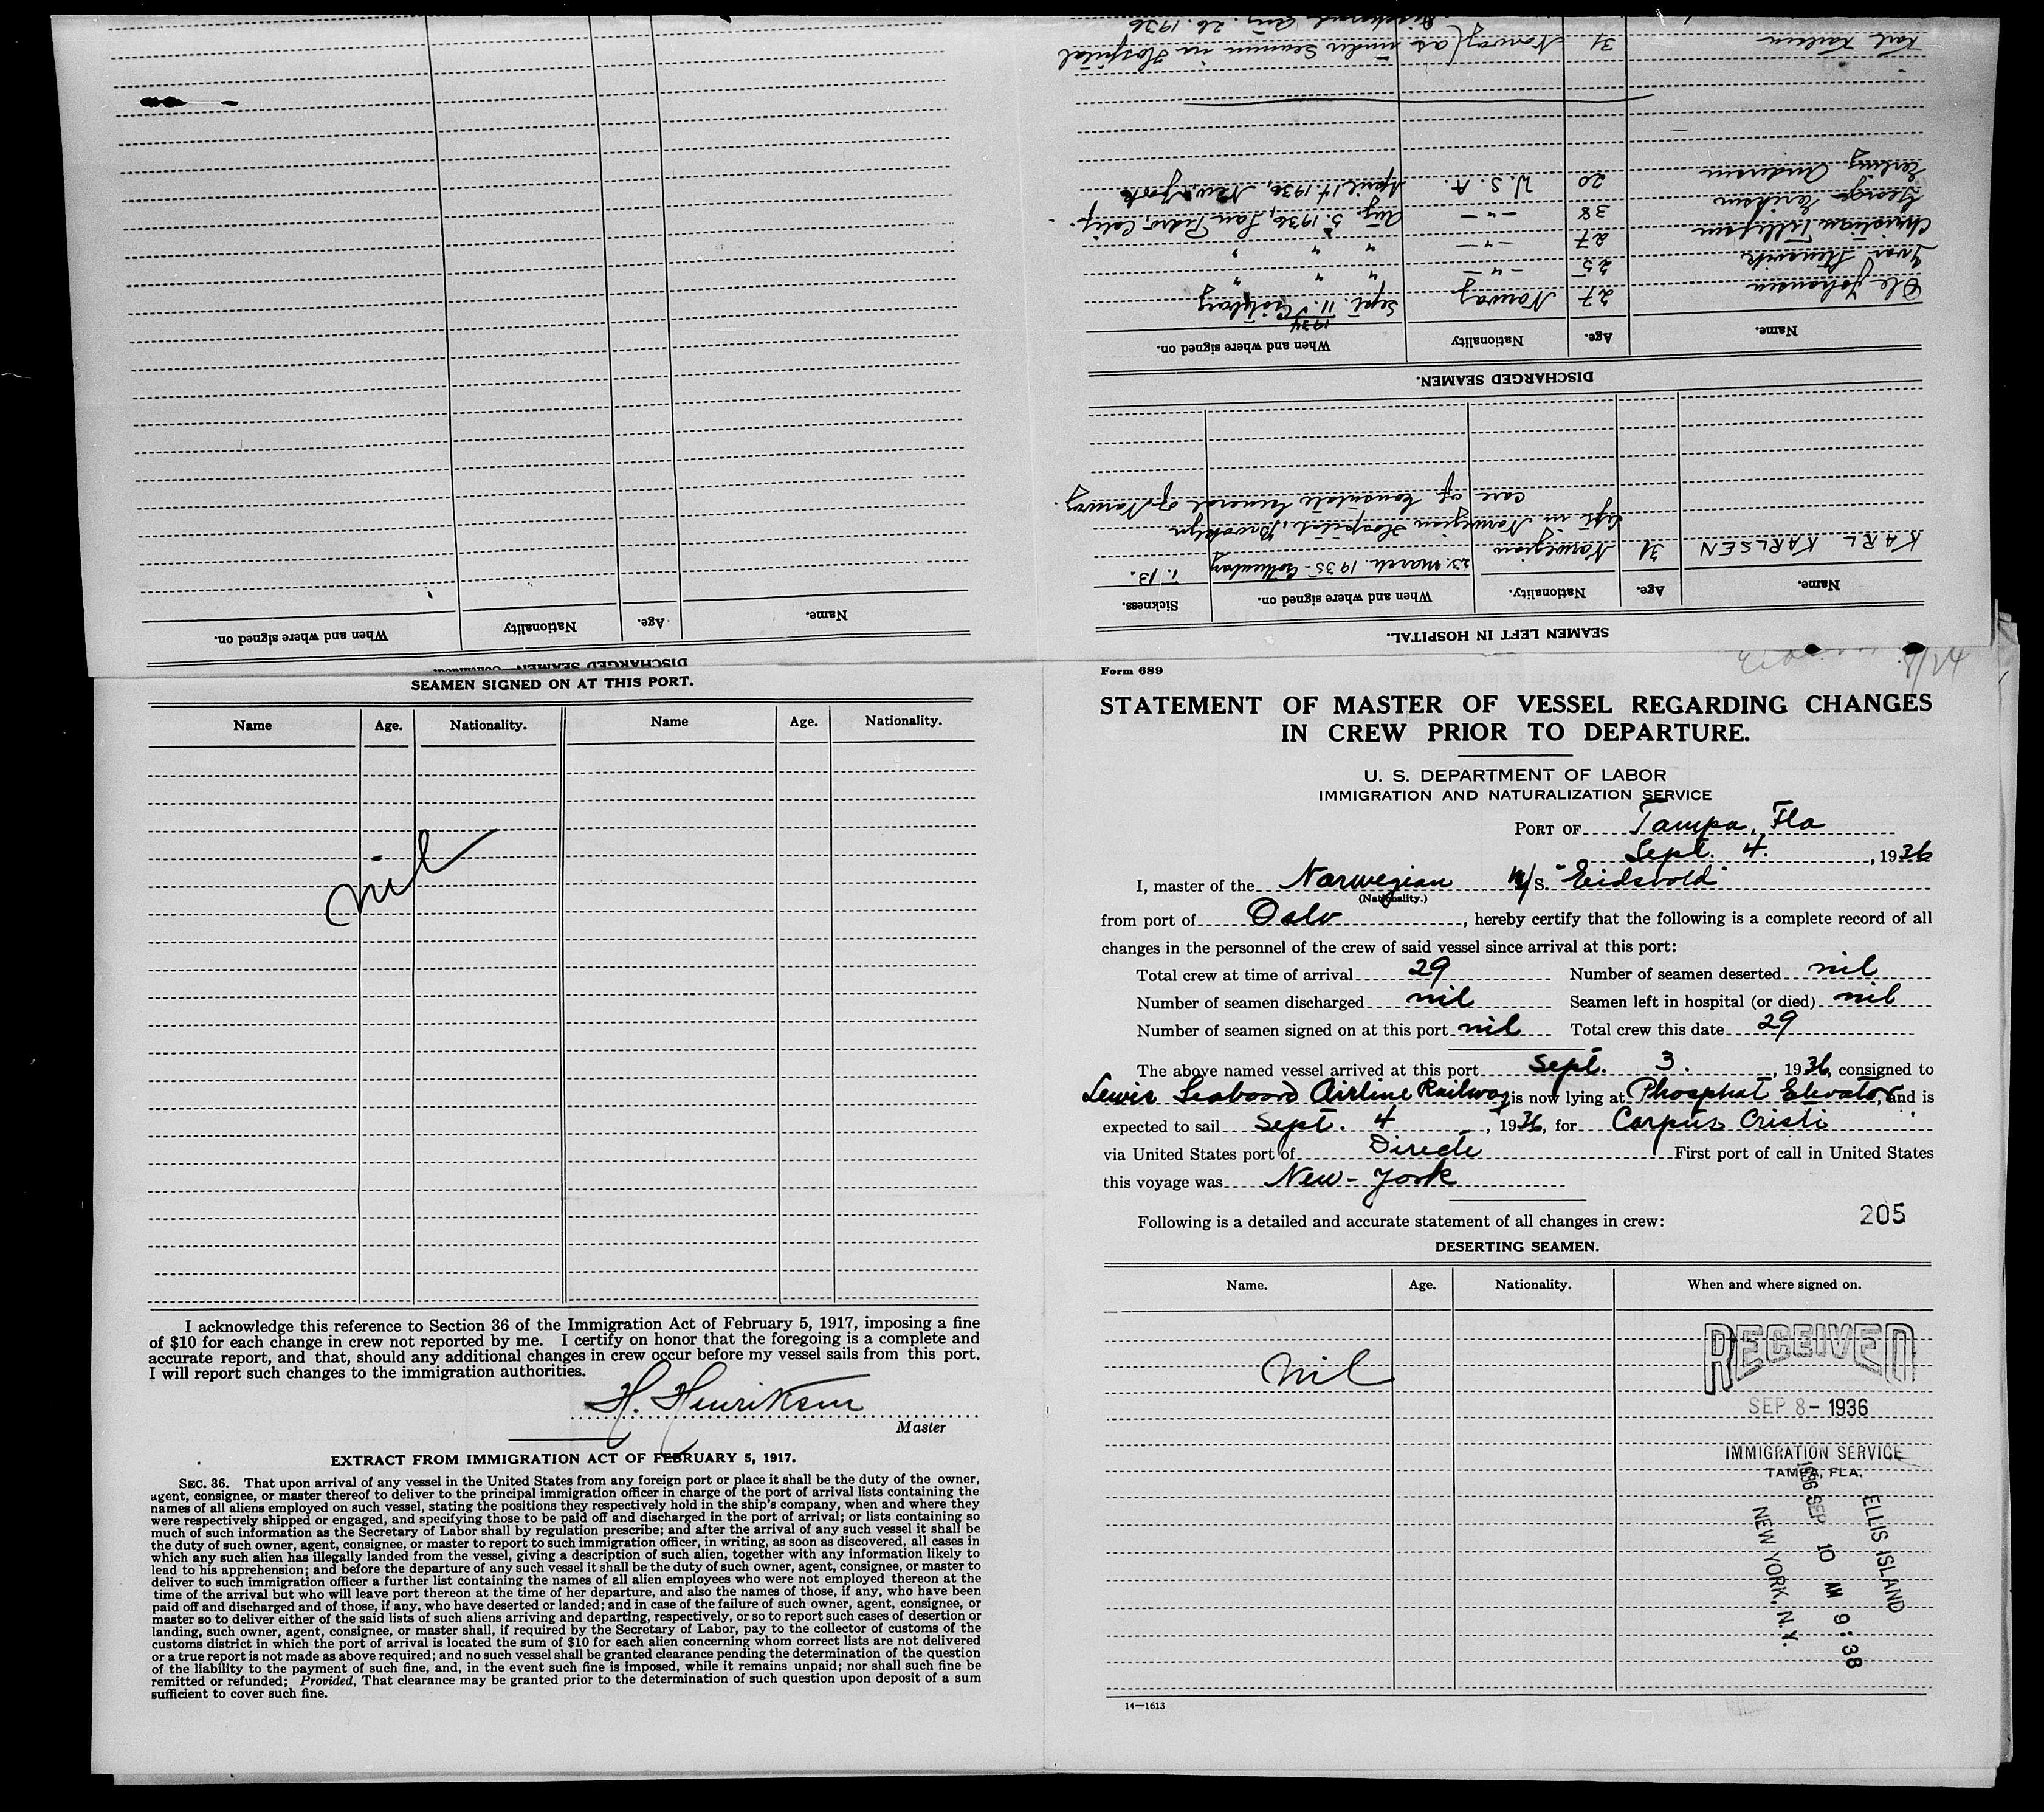 DISCHARGED SEAMEN—Continued.
Name.
Age.
Nationality
When and where signed on.
SEAMEN LEFT IN HOSPITAL.
Name.
Age.
Nationality.
When and where signed on.
Sickness.
KARL KARLSEN 31 Norwegian 23. March. 1935 - Gothenburg T.B.
left in Norwegian Hospital, Brooklyn
care of Consulate General of Norway.
DISCHARGED SEAMEN.
Name.
Age.
Nationality
When and where signed on.
Ole Johansen 27 Norway Sept. 11. 1934 Göteborg
Ivar Stensvik 25 —"— " " "
Christian Tellefsen 27 —"— " " "
George Eriksen 38 —"— Aug. 5. 1936, San Pedro, Calif.
Erling Andersen 20 U.S.A. April 14. 1936, New York
Karl Karlsen 31 Norway (as under Seamen in Hospital
Discharged Aug. 26. 1936
SEAMEN SIGNED ON AT THIS PORT.
Name
Age.
Nationality.
Name
Age.
Nationality.
nil
I acknowledge this reference to Section 36 of the Immigration Act of February 5, 1917, imposing a fine
of $10 for each change in crew not reported by me. I certify on honor that the foregoing is a complete and
accurate report, and that, should any additional changes in crew occur before my vessel sails from this port,
I will report such changes to the immigration authorities.
H. Henriksen
Master
EXTRACT FROM IMMIGRATION ACT OF FEBRUARY 5, 1917.
SEC. 36. That upon arrival of any vessel in the United States from any foreign port or place it shall be the duty of the owner,
agent, consignee, or master thereof to deliver to the principal immigration officer in charge of the port of arrival lists containing the
names of all aliens employed on such vessel, stating the positions they respectively hold in the ship's company, when and where they
were respectively shipped or engaged, and specifying those to be paid off and discharged in the port of arrival; or lists containing so
much of such information as the Secretary of Labor shall by regulation prescribe; and after the arrival of any such vessel it shall be
the duty of such owner, agent, consignee, or master to report to such immigration officer, in writing, as soon as discovered, all cases in
which any such alien has illegally landed from the vessel, giving a description of such alien, together with any information likely to
lead to his apprehension; and before the departure of any such vessel it shall be the duty of such owner, agent, consignee, or master to
deliver to such immigration officer a further list containing the names of all alien employees who were not employed thereon at the
time of the arrival but who will leave port thereon at the time of her departure, and also the names of those, if any, who have been
paid off and discharged and of those, if any, who have deserted or landed; and in case of the failure of such owner, agent, consignee, or
master so to deliver either of the said lists of such aliens arriving and departing, respectively, or so to report such cases of desertion or
landing, such owner, agent, consignee, or master shall, if required by the Secretary of Labor, pay to the collector of customs of the
customs district in which the port of arrival is located the sum of $10 for each alien concerning whom correct lists are not delivered
or a true report is not made as above required; and no such vessel shall be granted clearance pending the determination of the question
of the liability to the payment of such fine, and, in the event such fine is imposed, while it remains unpaid; nor shall such fine be
remitted or refunded; Provided, That clearance may be granted prior to the determination of such question upon deposit of a sum
sufficient to cover such fine.
Form 689
STATEMENT OF MASTER OF VESSEL REGARDING CHANGES
IN CREW PRIOR TO DEPARTURE.
U. S. DEPARTMENT OF LABOR
IMMIGRATION AND NATURALIZATION SERVICE
PORT OF Tampa, Fla
Sept. 4. , 1936
I, master of the Norwegian M/S. "Eidsvold"
(Nationality.)
from port of Oslo, hereby certify that the following is a complete record of all
changes in the personnel of the crew of said vessel since arrival at this port:
Total crew at time of arrival 29 Number of seamen deserted nil
Number of seamen discharged nil Seamen left in hospital (or died) nil
Number of seamen signed on at this port nil Total crew this date 29
The above named vessel arrived at this port Sept. 3. , 1936, consigned to
Lewis Seaboard Airline Railway is now lying at Phosphat Elevator, and is
expected to sail Sept. 4 , 1936, for Corpus Cristi
via United States port of Directe First port of call in United States
this voyage was New-York
Following is a detailed and accurate statement of all changes in crew: 205
DESERTING SEAMEN.
Name.
Age.
Nationality.
When and where signed on.
nil
RECEIVED
SEP 8- 1936
IMMIGRATION SERVICE
TAMPA, FLA.
ELLIS ISLAND
1936 SEP 10 AM 9:38
NEW YORK, N.Y.
14—1613